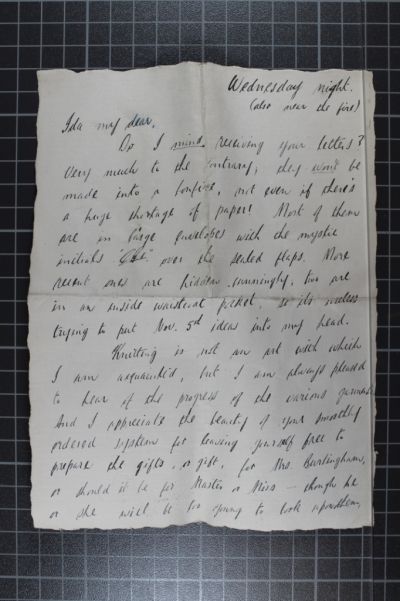 Wednesday night.
(also near the fire)
Ida my dear,
Do I mind receiving your letters?
Very much to the contrary; they won't be
made into a bonfire, not even if there's
a huge shortage of paper! Most of them
are in large envelopes with the mystic
initials over the sealed flaps. More
recent ones are hidden cunningly, two are
in an inside waistcoat pocket, so its useless
trying to put Nov. 5th ideas into my head.
Knitting is not an art with which
I am acquainted, but I am always pleased
to hear of the progress of the various garments
And I appreciate the beauty of your smoothly
ordered system for leaving yourself free to
prepare the gifts, or gift, for Mrs. Burlingham,
or should it be for Master or Miss — though he
or she will be too young to look upon them,